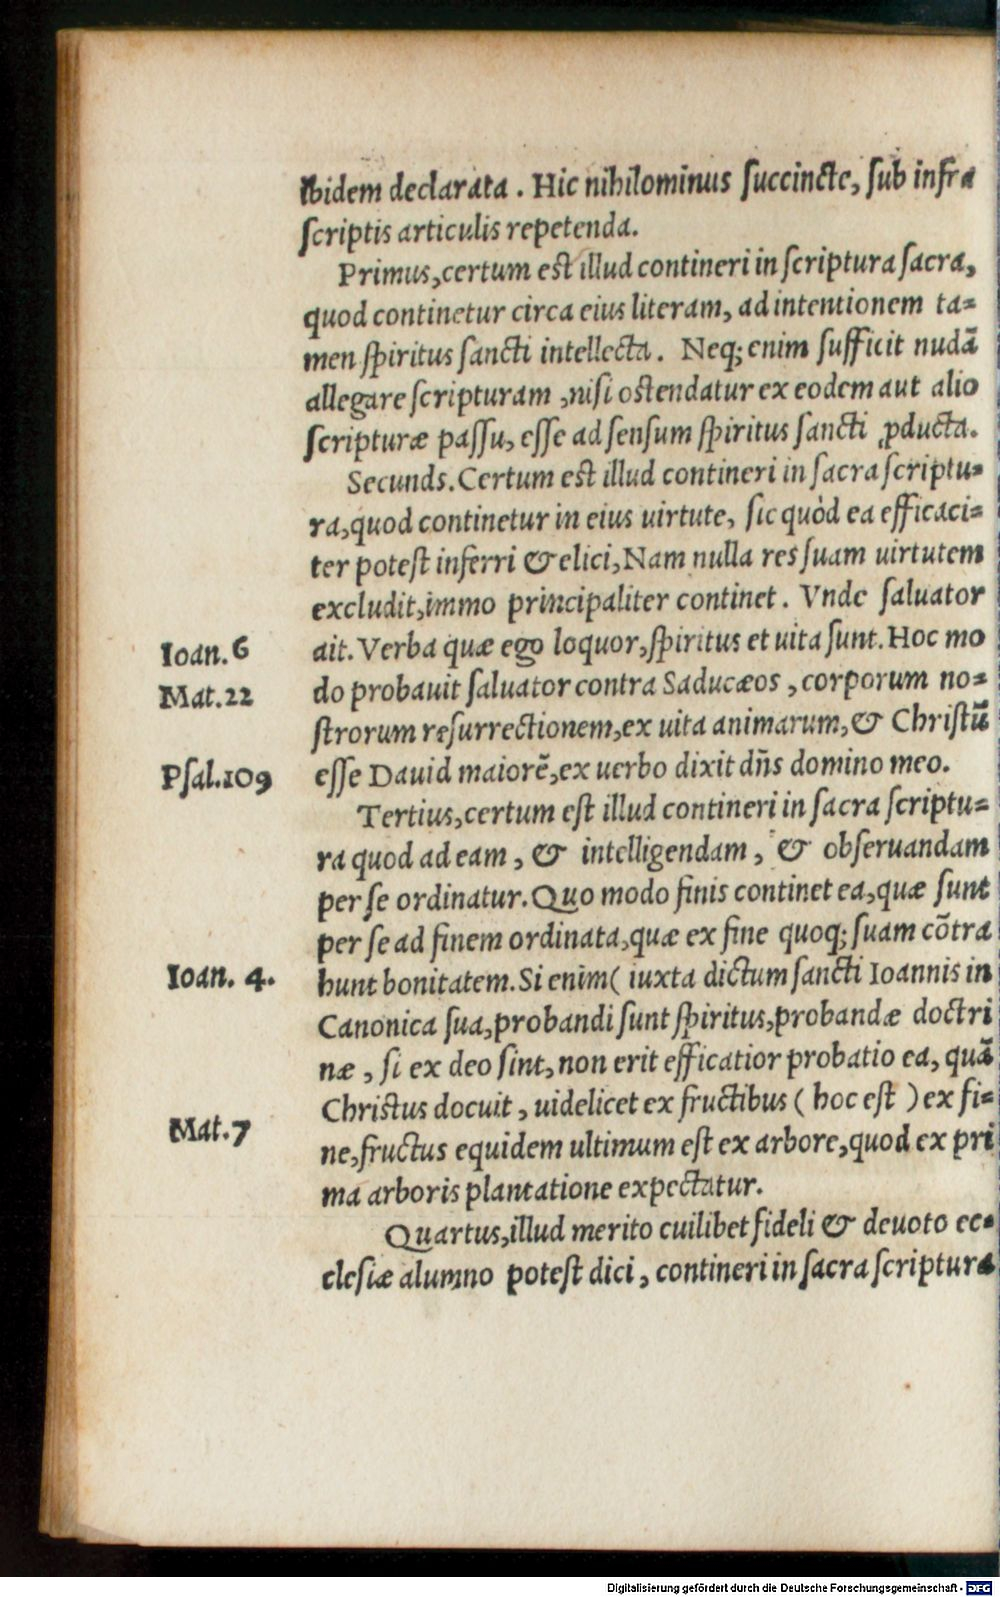 ibidem declarata. Hic nihilominus ſuccincte, ſub infra
ſcriptis articulis repetenda.
Primus, certum eſt illud contineri in ſcriptura ſacra,
quod continetur circa eius literam, ad intentionem ta=
men ſpiritus ſancti intellecta. Neq; enim ſufficit nudā
allegare ſcripturam, niſi oſtendatur ex eodem aut alio
ſcripturæ paſſu, eſſe ad ſenſum ſpiritus ſancti ꝓducta.
Secunds. Certum eſt illud contineri in ſacra ſcriptu=
ra, quod continetur in eius uirtute, ſic quòd ea efficaci=
ter poteſt inferri & elici, Nam nulla res ſuam uirtutem
excludit, immo principaliter continet. Vnde ſaluator
Ioan. 6 ait. Verba quæ ego loquor, ſpiritus et uita ſunt. Hoc mo
Mat. 22 do probauit ſaluator contra Saducæos, corporum no=
ſtrorum reſurrectionem, ex uita animarum, & Chriſtū
Pſal. 109 eſſe Dauid maiorē, ex uerbo dixit dn̄s domino meo.
Tertius, certum eſt illud contineri in ſacra ſcriptu=
ra quod ad eam, & intelligendam, & obſeruandam
per ſe ordinatur. Quo modo finis continet ea, quæ ſunt
per ſe ad finem ordinata, quæ ex fine quoq; ſuam cōtra
Ioan. 4. hunt bonitatem. Si enim ( iuxta dictum ſancti Ioannis in
Canonica ſua, probandi ſunt ſpiritus, probandæ doctri
næ, ſi ex deo ſint, non erit efficatior probatio ea, quā
Chriſtus docuit, uidelicet ex fructibus ( hoc eſt ) ex fi=
Mat. 7 ne, fructus equidem ultimum eſt ex arbore, quod ex pri
ma arboris plantatione expectatur.
Quartus, illud merito cuilibet fideli & deuoto ec=
cleſiæ alumno poteſt dici, contineri in ſacra ſcriptura
Digitalisierung gefördert durch die Deutsche Forschungsgemeinschaft - DFG